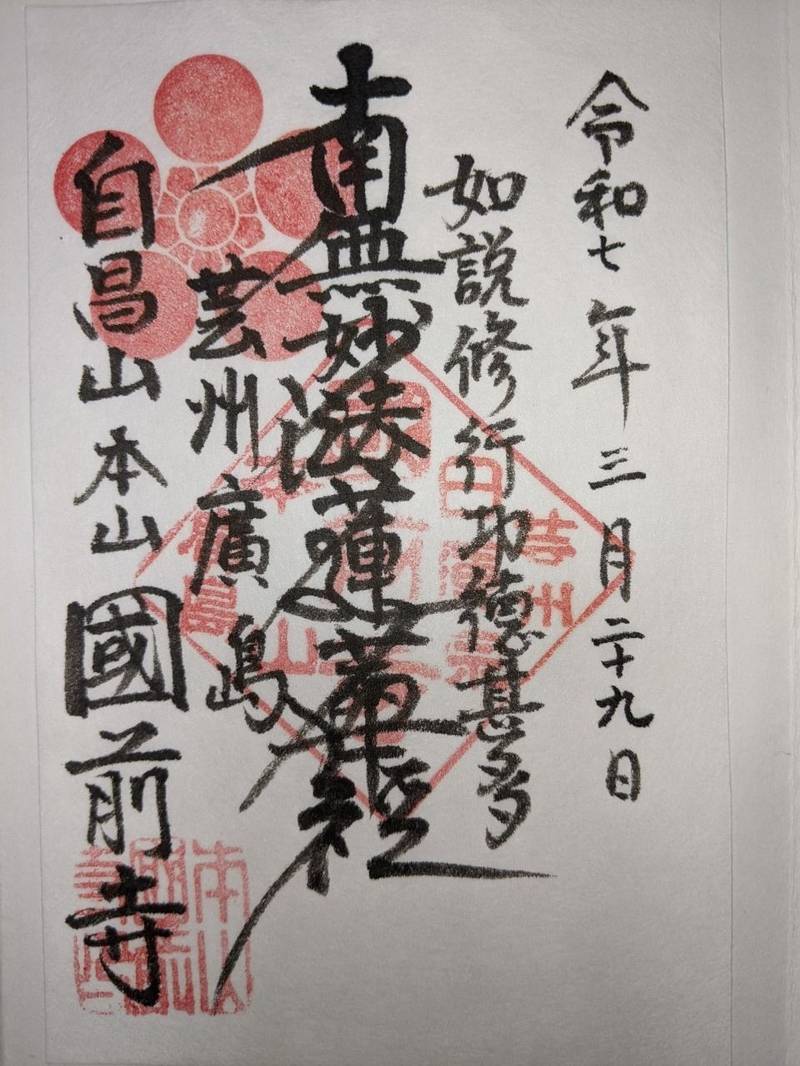 令和七年三月二十九日
如説修行功徳甚多
南無妙法蓮華経
芸州廣島
自昌山本山國前寺